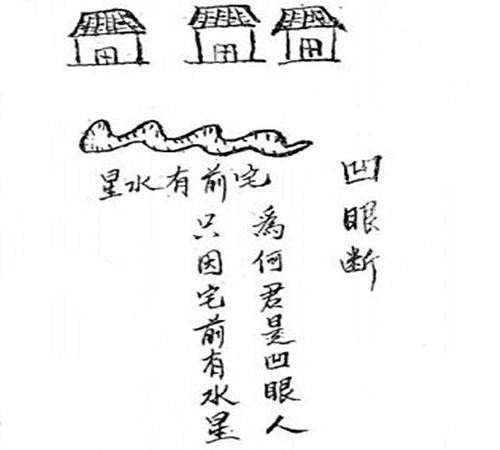 凹眼断
宅前有水星
為何君是凹眼人
只因宅前有水星